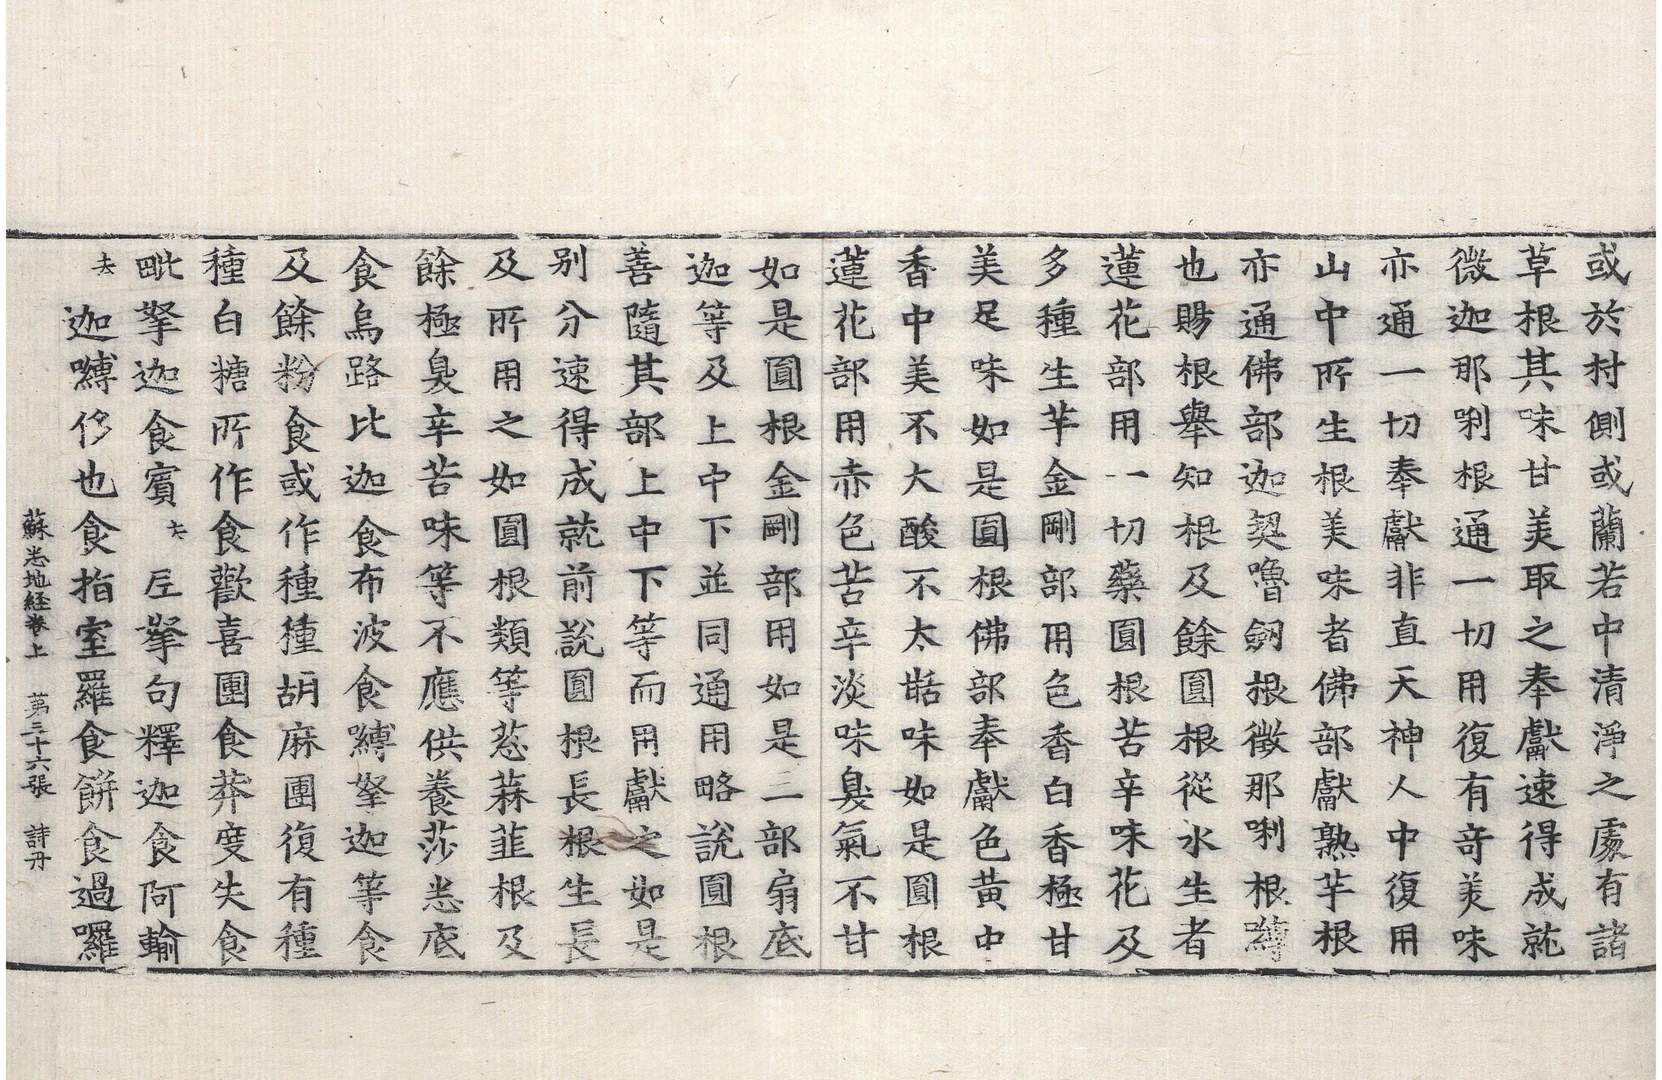 或於村側或蘭若中清淨之處有諸
草根其味甘美取之奉獻速得成就
微迦那唎根通一切用復有奇美味
亦通一切奉獻非直天神人中復用
山中所生根美味者佛部獻熟芋根
亦通佛部迦契嚕劒根徵那唎根縛
也賜根舉知根及餘圓根從水生者
蓮花部用一切藥圓根苦辛味花及
多種生芋金剛部用色香白香極甘
美足味如是圓根佛部奉獻色黃中
香中美不大酸不太甛味如是圓根
蓮花部用赤色苦辛淡味臭氣不甘
如是圓根金剛部用如是二部扇底
迦等及上中下並同通用略說圓根
善隨其部上中下等而用獻之如是
別分速得成就前說圓根長根生長
及所用之如圓根類等葱蒜韮根及
餘極臭辛苦味等不應供養莎悉底
食烏路比迦食布波食嚩拏迦等食
及餘粉食或作種種胡麻團復有種
種白糖所作食歡喜團食莽度失食
毗拏迦食賓去𠯆拏句釋迦食阿輸
去迦嚩侈也食指室羅食餅食過囉
蘇悉地経卷上 第三十六張 詩丹